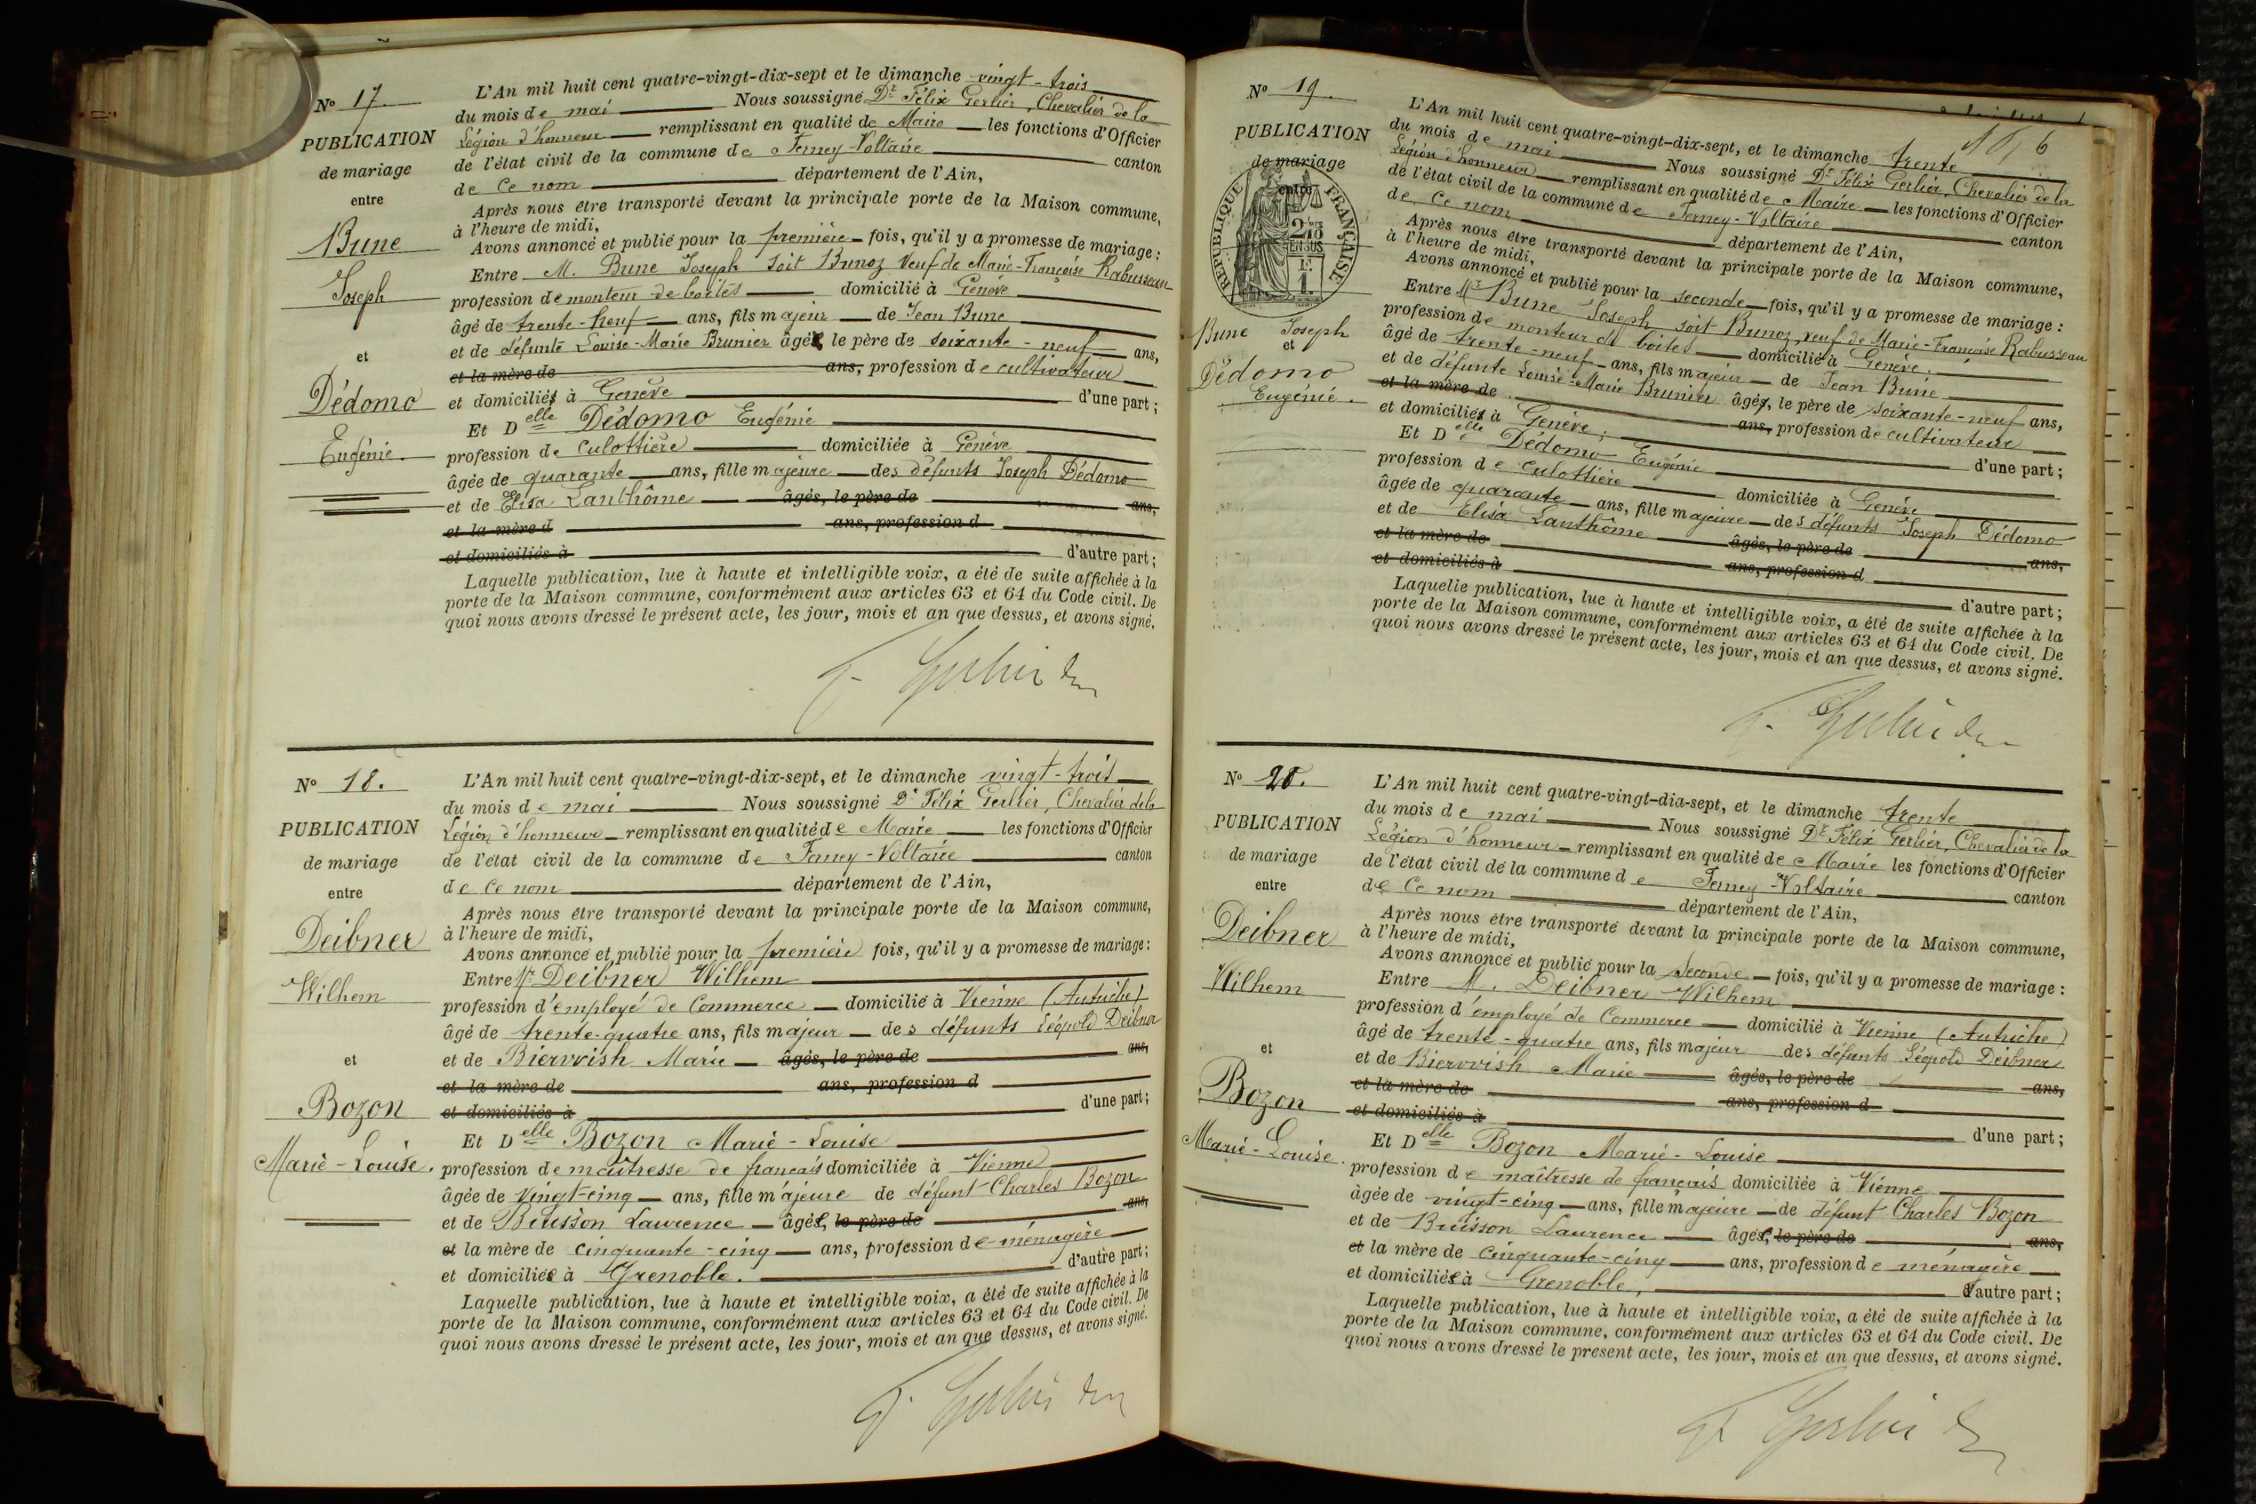 N° 17.
PUBLICATION
de mariage
entre
Bune
Joseph
et
Dédomo
Eugénie.
L'An mil huit cent quatre-vingt-dix-sept et le dimanche vingt-trois
du mois de mai Nous soussigné Dr Félix Gerlier, Chevalier de la
Légion d'honneur remplissant en qualité de Maire les fonctions d'Officier
de l'état civil de la commune de Ferney-Voltaire canton
de Ce nom département de l'Ain,
Après nous être transporté devant la principale porte de la Maison commune,
à l'heure de midi,
Avons annoncé et publié pour la première fois, qu'il y a promesse de mariage :
Entre M. Bune Joseph soit Bunoz veuf de Marie-Françoise Rabusseau
profession de monteur de boîtes domicilié à Genève
âgé de trente-neuf ans, fils majeur de Jean Bune
et de défunte Louise-Marie Brunier âgé, le père de soixante-neuf ans,
et la mère de ans, profession de cultivateur
et domiciliés à Genève d'une part ;
Et Delle Dédomo Eugénie
profession de culottière domiciliée à Genève
âgée de quarante ans, fille majeure des défunts Joseph Dédomo
et de Elisa Lanthôme âgés, le père de ans,
et la mère d ans, profession d
et domiciliés à d'autre part ;
Laquelle publication, lue à haute et intelligible voix, a été de suite affichée à la
porte de la Maison commune, conformément aux articles 63 et 64 du Code civil. De
quoi nous avons dressé le présent acte, les jour, mois et an que dessus, et avons signé.
F. Gerlier
N° 18.
PUBLICATION
de mariage
entre
Deibner
Wilhem
et
Bozon
Marie-Louise.
L'An mil huit cent quatre-vingt-dix-sept, et le dimanche vingt-trois
du mois de mai Nous soussigné Dr Félix Gerlier, Chevalier de la
Légion d'honneur remplissant en qualité de Maire les fonctions d'Officier
de l'état civil de la commune de Ferney-Voltaire canton
de Ce nom département de l'Ain,
Après nous être transporté devant la principale porte de la Maison commune,
à l'heure de midi,
Avons annoncé et publié pour la première fois, qu'il y a promesse de mariage :
Entre Mr Deibner Wilhem
profession d'employé de Commerce domicilié à Vienne (Autriche)
âgé de trente-quatre ans, fils majeur des défunts Léopold Deibner
et de Biervvish Marie âgés, le père de ans,
et la mère de ans, profession d
et domiciliés à d'une part ;
Et Delle Bozon Marie-Louise
profession de maîtresse de français domiciliée à Vienne
âgée de vingt-cinq ans, fille majeure de défunt Charles Bozon
et de Buisson Laurence âgée, le père de ans,
et la mère de cinquante-cinq ans, profession de ménagère
et domiciliée à Grenoble. d'autre part ;
Laquelle publication, lue à haute et intelligible voix, a été de suite affichée à la
porte de la Maison commune, conformément aux articles 63 et 64 du Code civil. De
quoi nous avons dressé le présent acte, les jour, mois et an que dessus, et avons signé.
F. Gerlier
N° 19.
PUBLICATION
de mariage
entre
RÉPUBLIQUE FRANÇAISE
2/10
EN SUS
1F.
Bune Joseph
et
Dédomo
Eugénie.
L'An mil huit cent quatre-vingt-dix-sept, et le dimanche trente
du mois de mai Nous soussigné Dr Félix Gerlier, Chevalier de la
Légion d'honneur remplissant en qualité de Maire les fonctions d'Officier
de l'état civil de la commune de Ferney-Voltaire canton
de Ce nom département de l'Ain,
Après nous être transporté devant la principale porte de la Maison commune,
à l'heure de midi,
Avons annoncé et publié pour la seconde fois, qu'il y a promesse de mariage :
Entre Mr Bune Joseph soit Bunoz, veuf de Marie-Françoise Rabusseau
profession de monteur de boîtes domicilié à Genève.
âgé de trente-neuf ans, fils majeur de Jean Bune
et de défunte Louise-Marie Brunier âgé, le père de soixante-neuf ans,
et la mère de ans, profession de cultivateur
et domiciliés à Genève ; d'une part ;
Et Delle Dédomo Eugénie
profession de culottière domiciliée à Genève
âgée de quarante ans, fille majeure des défunts Joseph Dédomo
et de Elisa Lanthôme âgés, le père de ans,
et la mère de ans, profession d
et domiciliés à d'autre part ;
Laquelle publication, lue à haute et intelligible voix, a été de suite affichée à la
porte de la Maison commune, conformément aux articles 63 et 64 du Code civil. De
quoi nous avons dressé le présent acte, les jour, mois et an que dessus, et avons signé.
F. Gerlier
N° 20.
PUBLICATION
de mariage
entre
Deibner
Wilhem
et
Bozon
Marie-Louise.
L'An mil huit cent quatre-vingt-dix-sept, et le dimanche trente
du mois de mai Nous soussigné Dr Félix Gerlier, Chevalier de la
Légion d'honneur remplissant en qualité de Maire les fonctions d'Officier
de l'état civil de la commune de Ferney-Voltaire canton
de Ce nom département de l'Ain,
Après nous être transporté devant la principale porte de la Maison commune,
à l'heure de midi,
Avons annoncé et publié pour la seconde fois, qu'il y a promesse de mariage :
Entre M. Deibner Wilhem
profession d'employé de Commerce domicilié à Vienne (Autriche)
âgé de trente-quatre ans, fils majeur des défunts Léopold Deibner
et de Biervvish Marie âgés, le père de ans,
et la mère de ans, profession d
et domiciliés à d'une part ;
Et Delle Bozon Marie-Louise
profession de maîtresse de français domiciliée à Vienne
âgée de vingt-cinq ans, fille majeure de défunt Charles Bozon
et de Buisson Laurence âgée, le père de ans,
et la mère de cinquante-cinq ans, profession de ménagère
et domiciliée à Grenoble, d'autre part ;
Laquelle publication, lue à haute et intelligible voix, a été de suite affichée à la
porte de la Maison commune, conformément aux articles 63 et 64 du Code civil. De
quoi nous avons dressé le présent acte, les jour, mois et an que dessus, et avons signé.
F. Gerlier